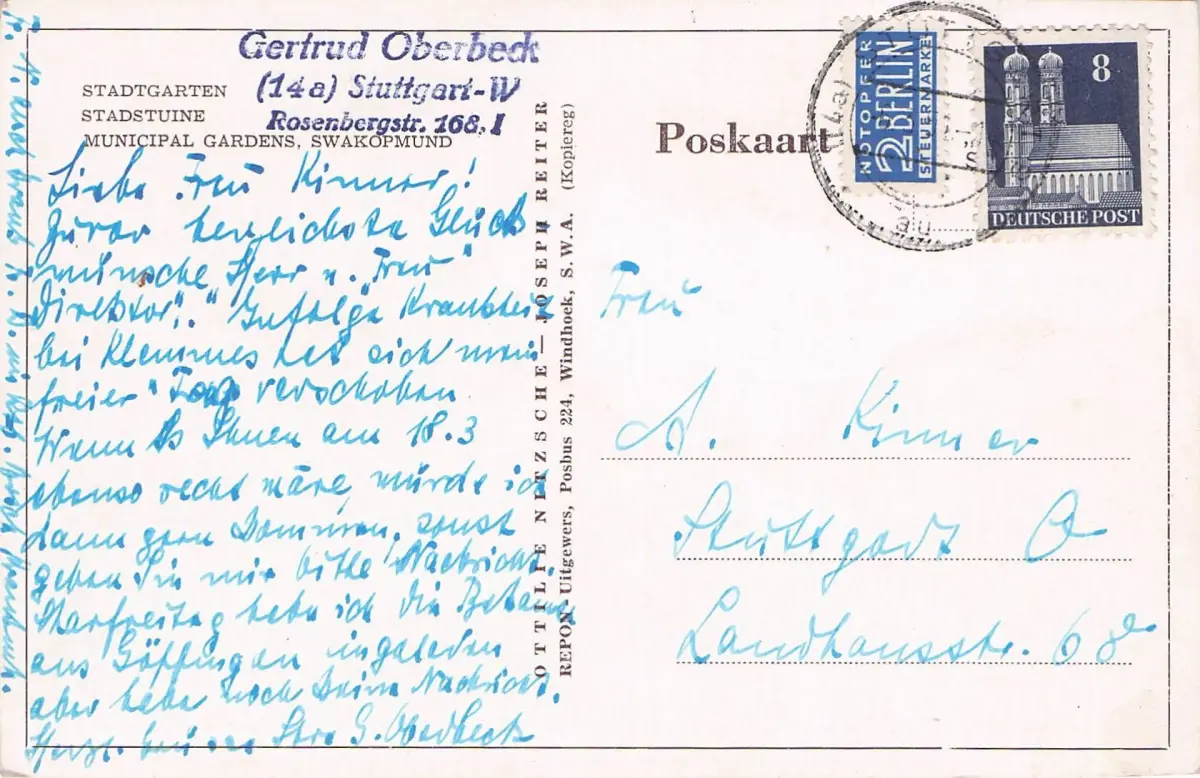 Gertrud Oberbeck
(14a) Stuttgart-W
Rosenbergstr. 168, I
STADTGARTEN
STADSTUINE
MUNICIPAL GARDENS, SWAKOPMUND
Poskaart
NOTOPFER
2 BERLIN
STEUERMARKE
8
DEUTSCHE POST
(14a)
Liebe Frau Kinner!
Zuvor herzlichste Glück
wünsche Herr u. "Frau"
Direktor". Infolge Krankheit
bei Klemmes hat sich mein
freier Tag verschoben
Wenn es Ihnen am 18.3
ebenso recht wäre, würde ich
dann gern kommen, sonst
geben Sie mir bitte Nachricht.
Karfreitag habe ich die
aus Göppingen eingeladen
aber habe noch keine Nachricht.
Herzl. Ihre G. Oberbeck
OTTILIE NITZSCHE — JOSEPH REITER
REPON-Uitgewers, Posbus 224, Windhoek, S.W.A. (Kopiereg)
Frau
A. Kinner
Stuttgart O
Landhausstr.